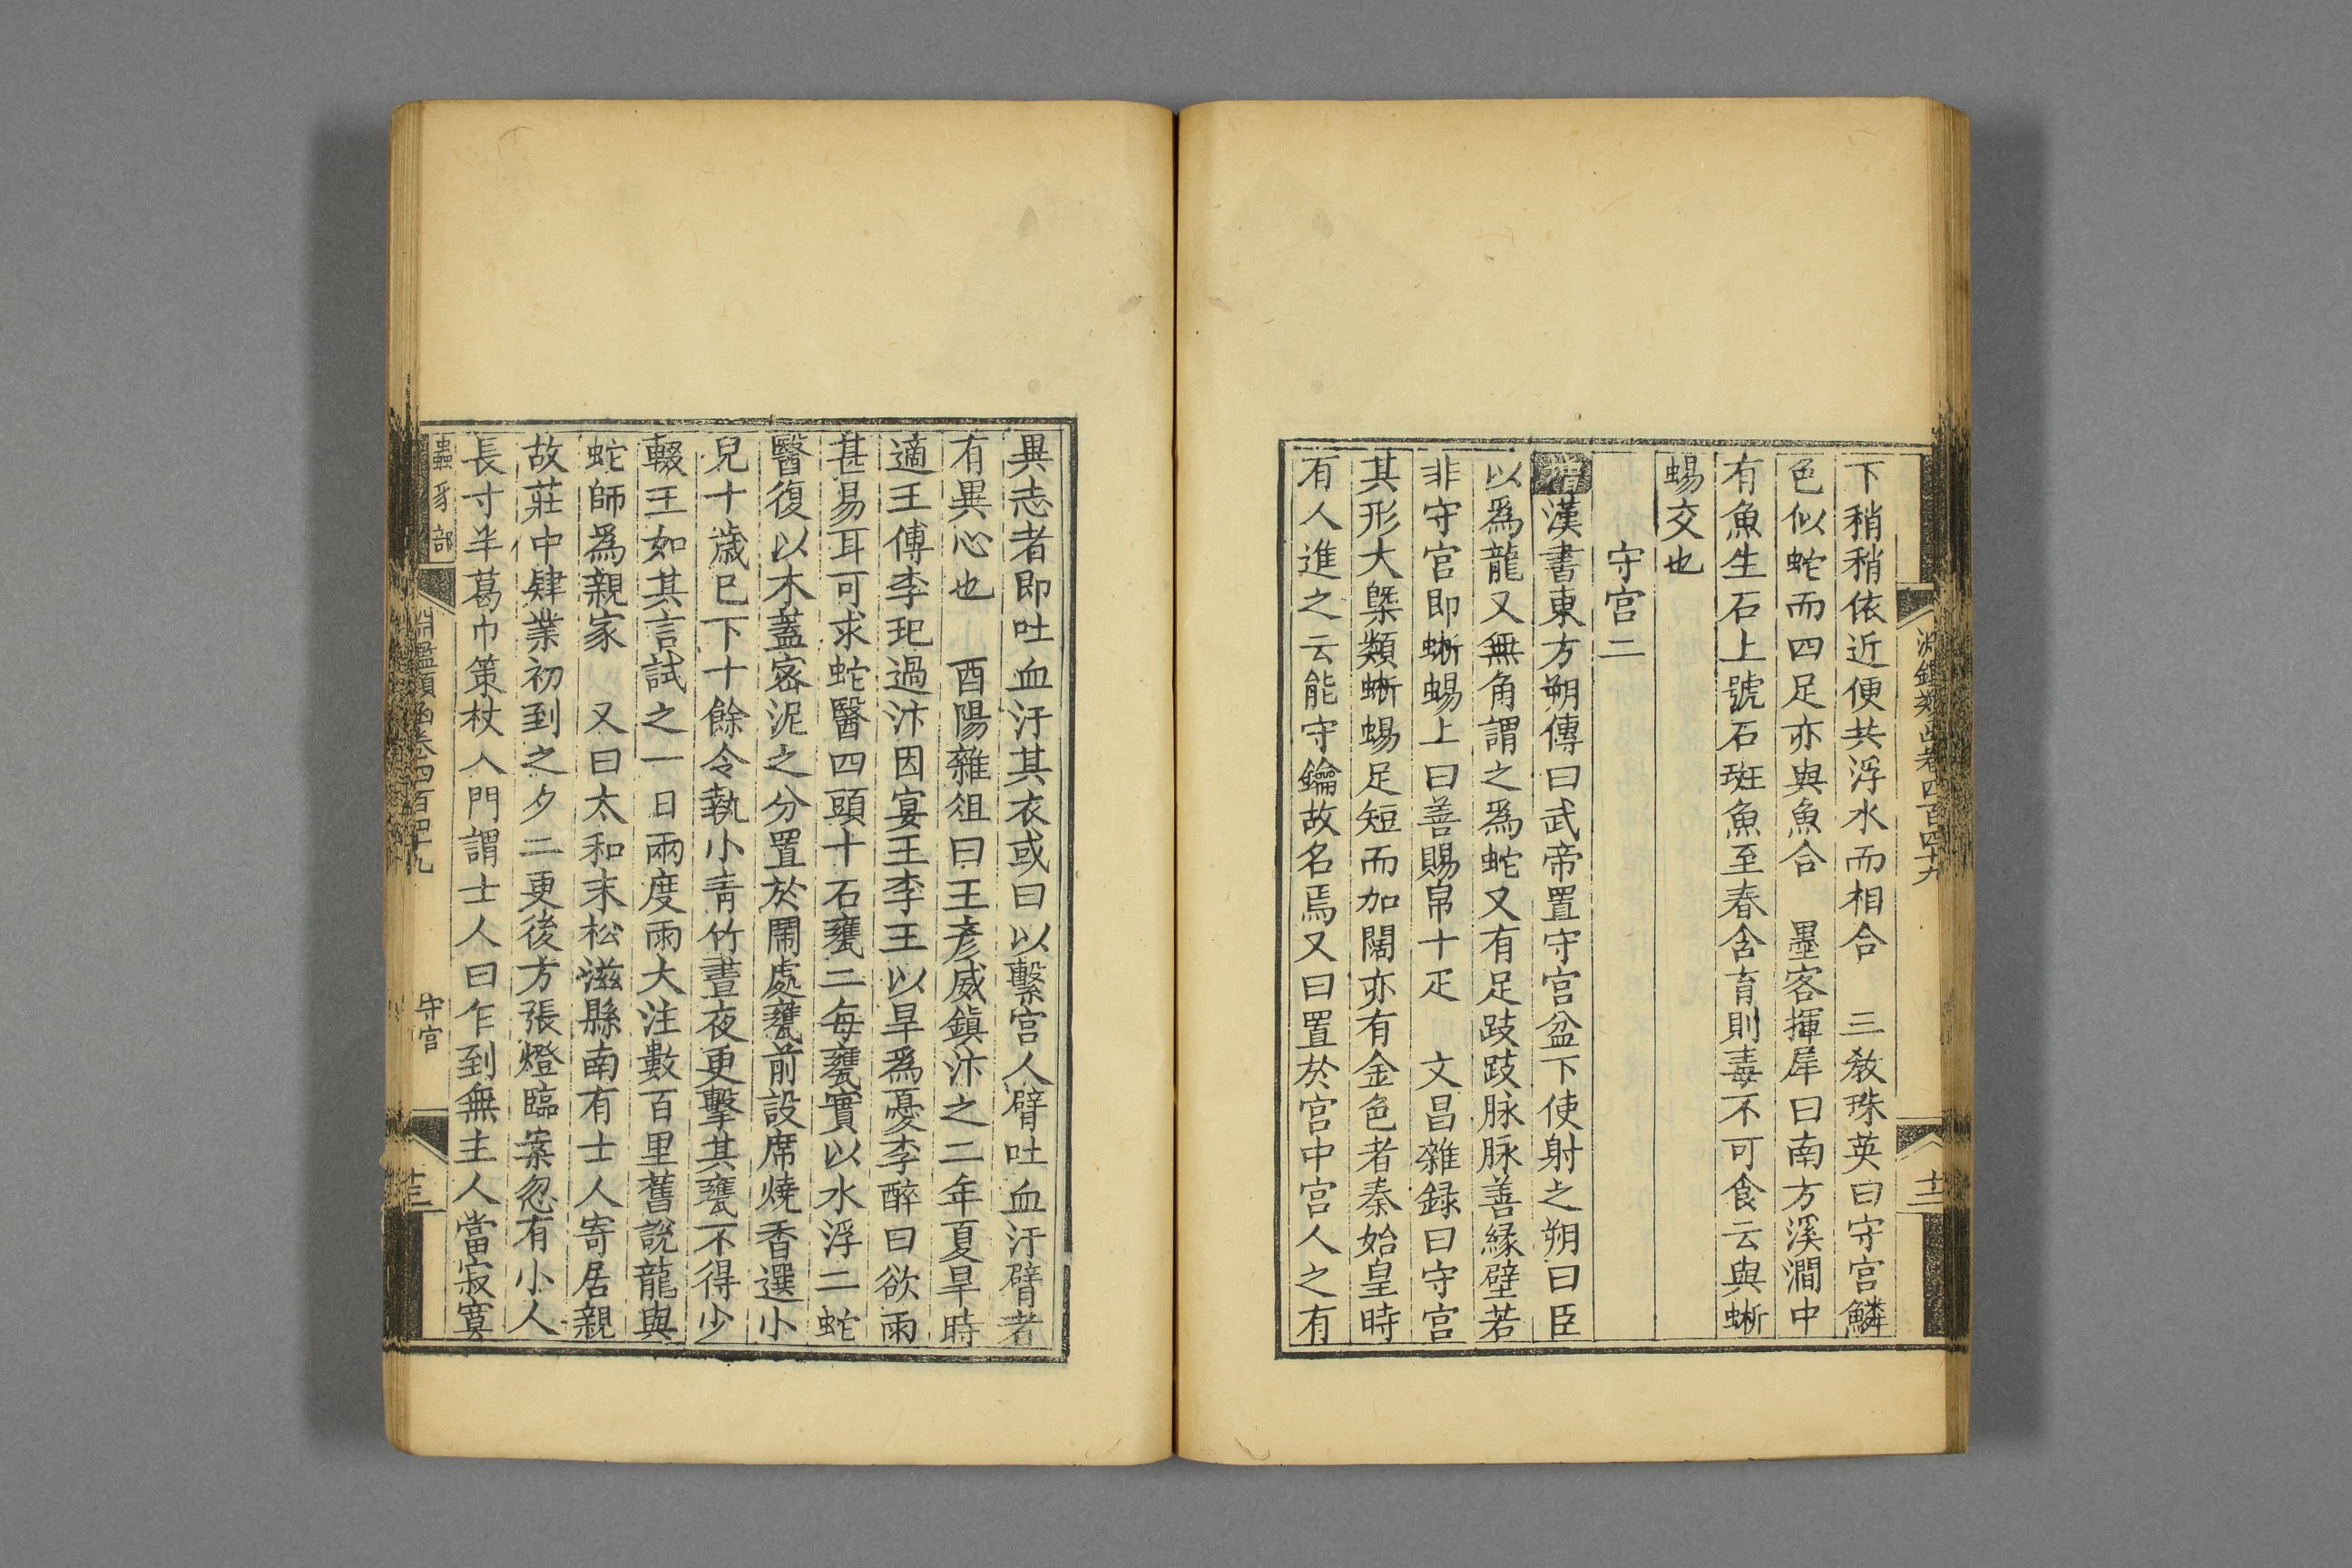 淵鑑類函卷四百四十九
十二
下稍稍依近便共浮水而相合　三教珠英曰守宮鱗
色似蛇而四足亦與魚合　墨客揮犀曰南方溪澗中
有魚生石上號石斑魚至春含育則毒不可食云與蜥
蜴交也
守宮二
增漢書東方朔傳曰武帝置守宮盆下使射之朔曰臣
以爲龍又無角謂之爲蛇又有足跂跂脉脉善緣壁若
非守宮即蜥蜴上曰善賜帛十疋　文昌雜録曰守宮
其形大槩類蜥蜴足短而加闊亦有金色者秦始皇時
有人進之云能守鑰故名焉又曰置於宮中宮人之有
異志者即吐血汙其衣或曰以繫宮人臂吐血汙臂者
有異心也　酉陽雜俎曰王彥威鎮汴之二年夏旱時
適王傅李玘過汴因宴王李王以旱爲憂李醉曰欲雨
甚易耳可求蛇醫四頭十石甕二每甕實以水浮二蛇
醫復以木蓋密泥之分置於鬧處甕前設席燒香選小
兒十歲巳下十餘令執小青竹晝夜更擊其甕不得少
輟王如其言試之一日兩度雨大注數百里舊說龍與
蛇師爲親家　又曰太和末松滋縣南有士人寄居親
故莊中肄業初到之夕二更後方張燈臨案忽有小人
長寸半葛巾策杖入門謂士人曰乍到無主人當寂寞
蟲豸部
淵鑑類函卷四百四十九
守宮
十三